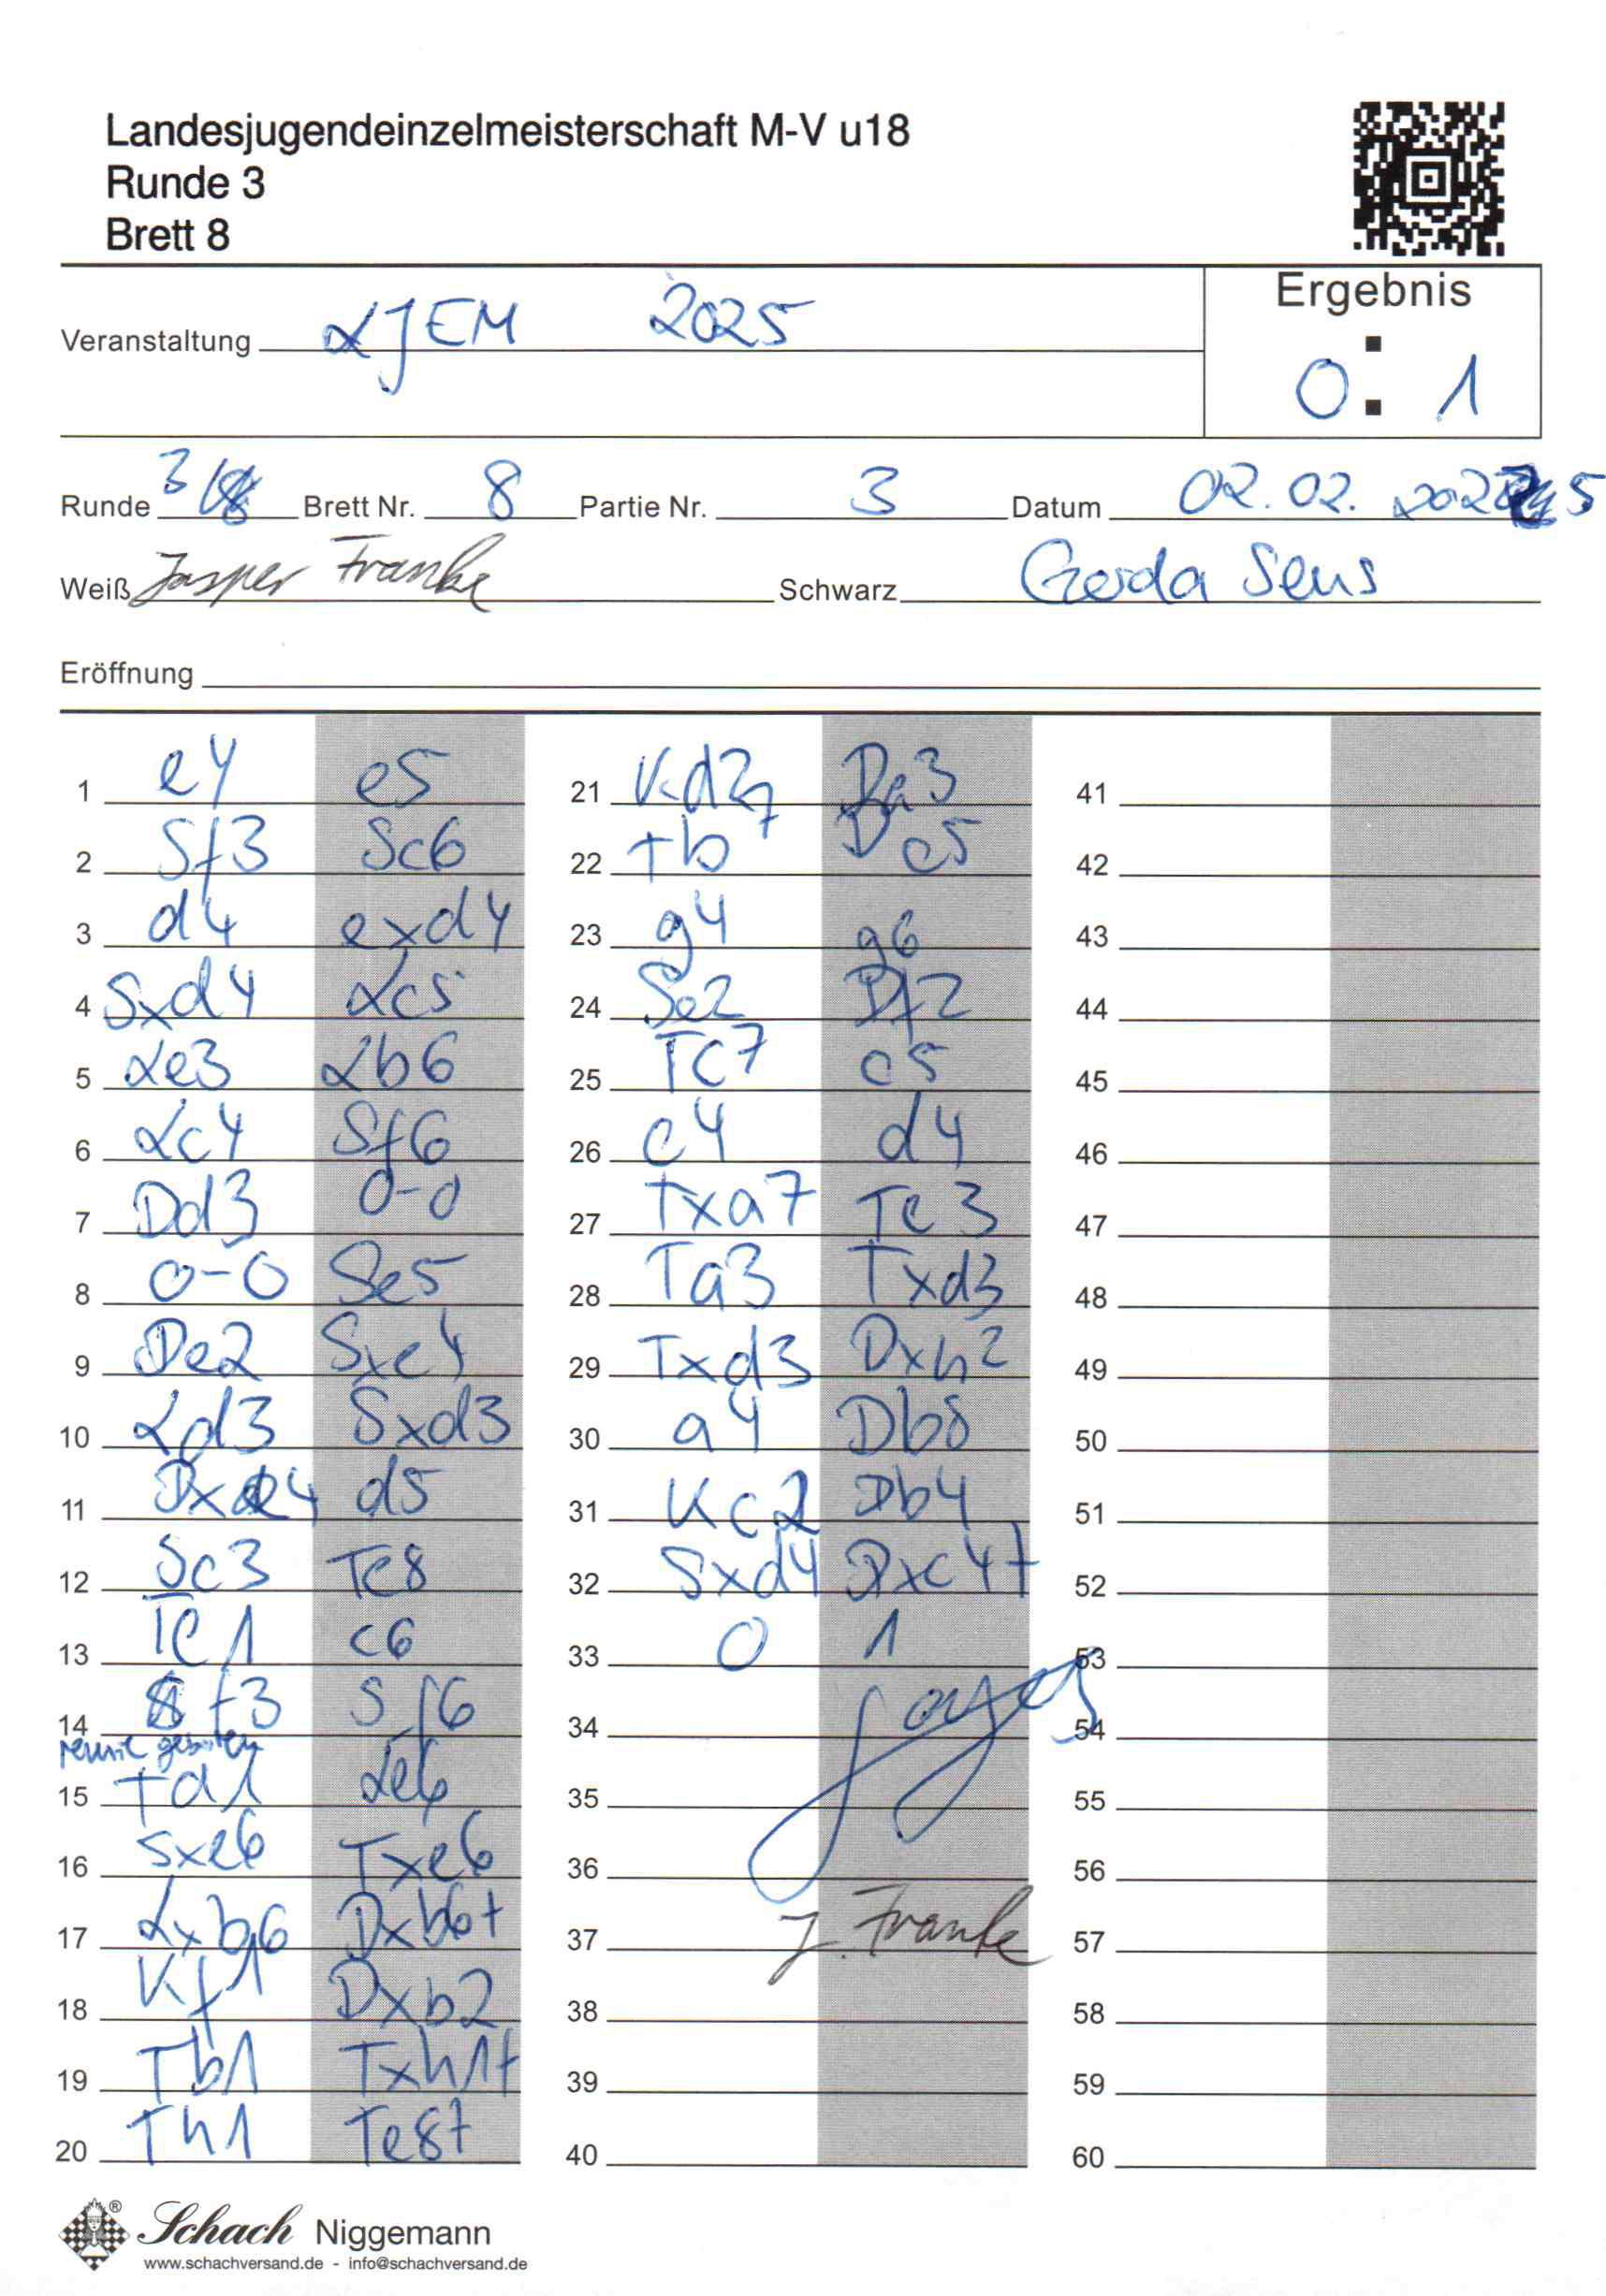 Landesjugendeinzelmeisterschaft M-V u18
Runde 3
Brett 8
Ergebnis
0 : 1
Veranstaltung LJEM 2025
Runde 3 Brett Nr. 8 Partie Nr. 3 Datum 02.02.2025
Weiß Jasper Franke Schwarz Gerda Sens
Eröffnung
1 e4 e5
2 Sf3 Sc6
3 d4 exd4
4 Sxd4 Lc5
5 Le3 Lb6
6 Lc4 Sf6
7 Dd3 0-0
8 0-0 Se5
9 De2 Sxe4
10 Ld3 Sxd3
11 Dxe4 d5
12 Sc3 Te8
13 Te1 c6
14 Sf3 Sf6
remie geboten
15 Td1 Le6
16 Sxe6 Txe6
17 Lxb6 Dxb6+
18 Kf1 Dxb2
19 Tb1 Txh1+
20 Th1 Te8+
21 Kd2 Da3
22 Tb7 Dc5
23 g4 g6
24 Se2 Df2
25 Tc7 c5
26 c4 d4
27 Txa7 Te3
28 Ta3 Txd3
29 Txd3 Dxh2
30 a4 Db8
31 Kc2 Db4
32 Sxd4 Dxc4+
33 0 1
34
35
36
37 J. Franke
38
39
40
41
42
43
44
45
46
47
48
49
50
51
52
53
54
55
56
57
58
59
60
Schach Niggemann
www.schachversand.de - info@schachversand.de